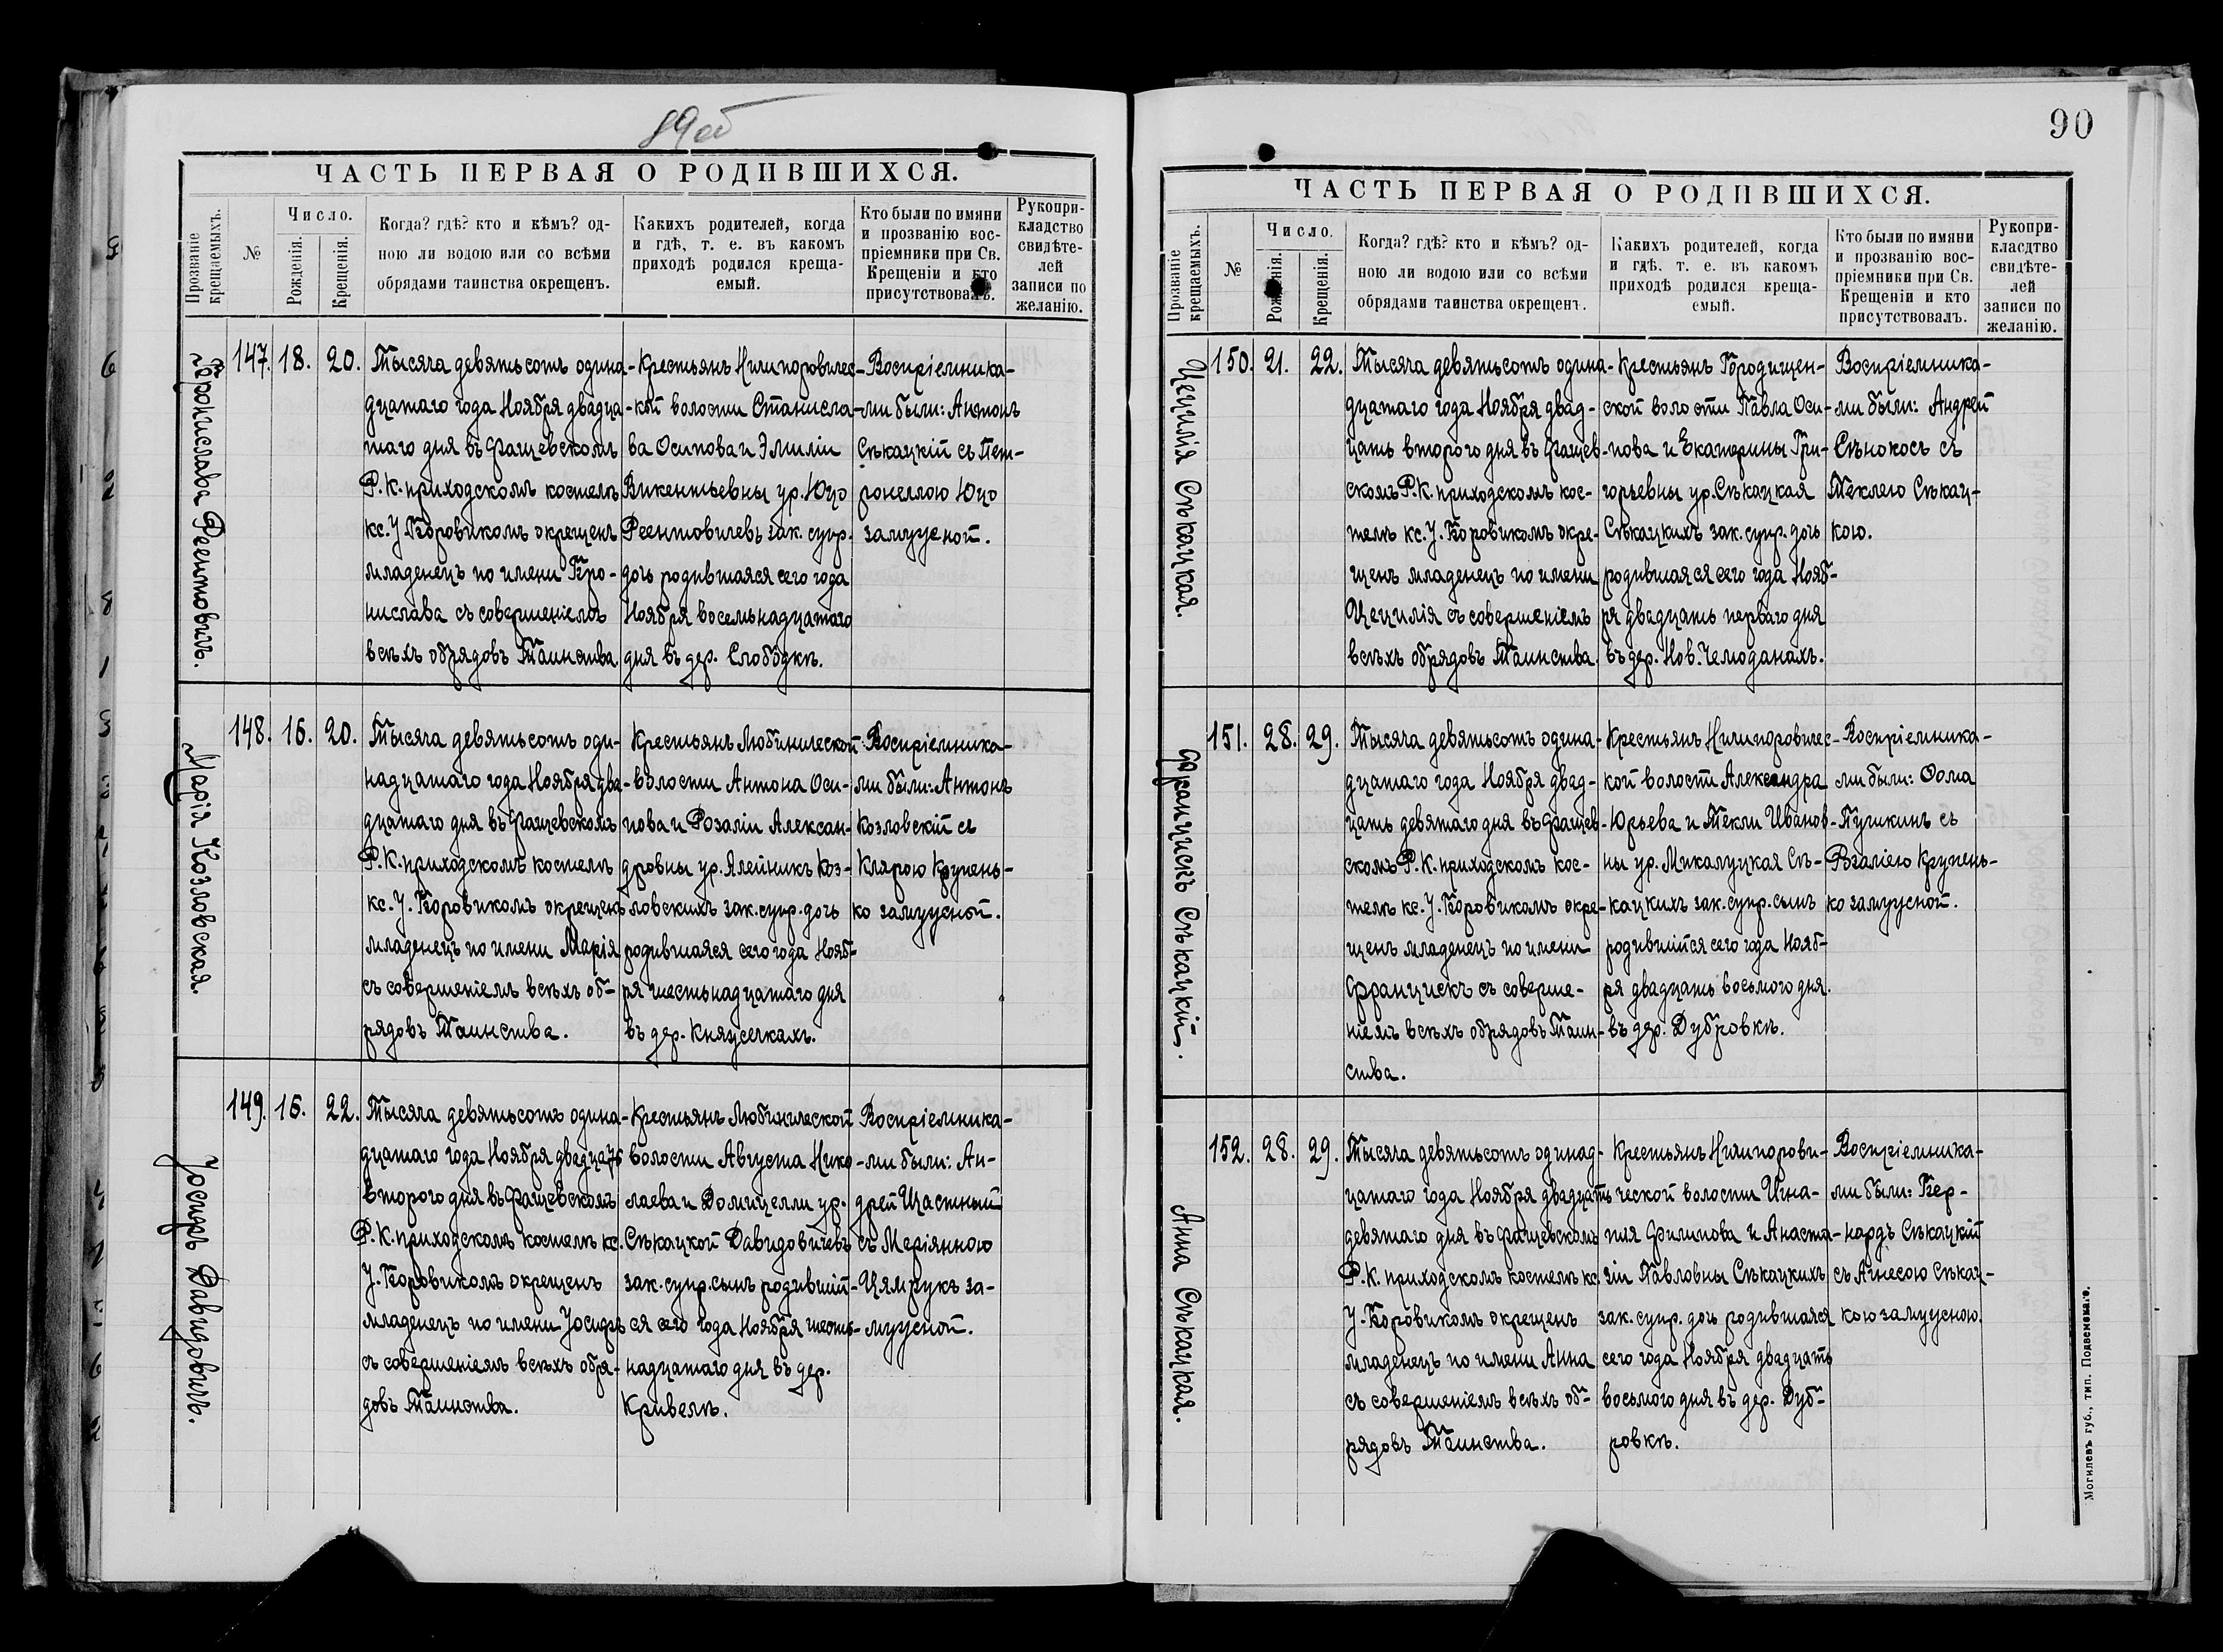 89об
ЧАСТЬ ПЕРВАЯ О РОДИВШИХСЯ.
Прозваніе крещаемыхъ.
№
Число.
Рожденія.
Крещенія.
Когда? гдѣ? кто и кѣмъ? од-
ною ли водою или со всѣми
обрядами таинства окрещенъ.
Какихъ родителей, когда
и гдѣ, т. е. въ какомъ
приходѣ родился креща-
емый.
Кто были по имяни
и прозванію вос-
пріемники при Св.
Крещеніи и кто
присутствовалъ.
Рукопри-
кладство
свидѣте-
лей
записи по
желанію.
Бронислава Реентовичъ.
147. 18. 20.
Тысяча девятьсотъ одина-
дцатаго года Ноября двадца-
таго дня въ Фащевскомъ
Р.К. приходскомъ костелѣ
кс. У. Боровикомъ окрещенъ
младенецъ по имени Бро-
нислава съ совершеніемъ
всѣхъ обрядовъ Таинства.
Крестьянъ Ничипоровичес-
кой волости Станисла-
ва Осипова и Эмиліи
Викентьевны ур. Юцо
Реентовичевъ зак. супр.
дочь родившаяся сего года
Ноября восемьнадцатаго
дня въ дер. Слободкѣ.
Воспріемника-
ми были: Антонъ
Сѣкацкій съ Пет-
ронеллою Юцо
замужной.
Марія Козловская.
148. 16. 20.
Тысяча девятьсотъ оди-
надцатаго года Ноября два-
дцатаго дня въ Фащевскомъ
Р.К. приходскомъ костелѣ
кс. У. Боровикомъ окрещенъ
младенецъ по имени Марія
съ совершеніемъ всѣхъ об-
рядовъ Таинства.
Крестьянъ Любиничской
волости Антона Оси-
пова и Розаліи Алексан-
дровны ур. Ялейникъ Коз-
ловскихъ зак. супр. дочь
родившаяся сего года Нояб-
ря шестьнадцатаго дня
въ дер. Княжечкахъ.
Воспріемника-
ми были: Антонъ
Козловскій съ
Кларою Крупень-
ко замужной.
Іосифъ Давидовичъ.
149. 16. 22.
Тысяча девятьсотъ одина-
дцатаго года Ноября двадцать
второго дня въ Фащевскомъ
Р.К. приходскомъ костелѣ кс.
У. Боровикомъ окрещенъ
младенецъ по имени Іосифъ
съ совершеніемъ всѣхъ обря-
довъ Таинства.
Крестьянъ Любиничской
волости Августа Нико-
лаева и Домицелли ур.
Сѣкацкой Давидовичевъ
зак. супр. сынъ родившій-
ся сего года Ноября шесть-
надцатаго дня въ дер.
Кривелѣ.
Воспріемника-
ми были: Ан-
дрей Щастный
съ Маріянною
Цямрукъ за-
мужной.
90
ЧАСТЬ ПЕРВАЯ О РОДИВШИХСЯ.
Прозваніе крещаемыхъ.
№
Число.
Рожденія.
Крещенія.
Когда? гдѣ? кто и кѣмъ? од-
ною ли водою или со всѣми
обрядами таинства окрещенъ.
Какихъ родителей, когда
и гдѣ, т. е. въ какомъ
приходѣ родился креща-
емый.
Кто были по имяни
и прозванію вос-
пріемники при Св.
Крещеніи и кто
присутствовалъ.
Рукопри-
класдтво
свидѣте-
лей
записи по
желанію.
Цецилія Сѣкацкая.
150. 21. 22.
Тысяча девятьсотъ одина-
дцатаго года Ноября двад-
цать второго дня въ Фащев-
скомъ Р.К. приходскомъ кос-
телѣ кс. У. Боровикомъ окре-
щенъ младенец по имени
Цецилія съ совершеніемъ
всѣхъ обрядовъ Таинства.
Крестьянъ Городищен-
ской волости Павла Оси-
пова и Екатерины Гри-
горьевны ур. Сѣкацкая
Сѣкацкихъ зак. супр. дочь
родившаяся сего года Нояб-
ря двадцать перваго дня
въ дер. Нов. Чемоданахъ.
Воспріемника-
ми были: Андрей
Сѣнокосъ съ
Теклею Сѣкац-
кою.
Францискъ Сѣкацкій.
151. 28. 29.
Тысяча девятьсотъ одина-
дцатаго года Ноября двад-
цать девятаго дня въ Фащев-
скомъ Р.К. приходскомъ кос-
телѣ кс. У. Боровикомъ окре-
щенъ младенец по имени
Францискъ съ соверше-
ніемъ всѣхъ обрядовъ Таин-
ства.
Крестьянъ Ничипоровичес-
кой волости Александра
Юрьева и Текли Иванов-
ны ур. Микалуцкая Сѣ-
кацкихъ зак. супр. сынъ
родившійся сего года Нояб-
ря двадцать восьмого дня
въ дер. Дубровкѣ.
Воспріемника-
ми были: Ѳома
Пушкинъ съ
Розаліею Крупень-
ко замужной.
Анна Сѣкацкая.
152. 28. 29.
Тысяча девятьсотъ одинад-
цатаго года Ноября двадцать
девятаго дня въ Фащевскомъ
Р.К. приходскомъ костелѣ кс.
У. Боровикомъ окрещенъ
младенецъ по имени Анна
съ совершеніемъ всѣхъ об-
рядовъ Таинства.
Крестьянъ Ничипорови-
ческой волости Игна-
тія Филипова и Анаста-
зіи Павловны Сѣкацкихъ
зак. супр. дочь родившаяся
сего года Ноября двадцать
восьмого дня въ дер. Дуб-
ровкѣ.
Воспріемника-
ми были: Бер-
нардъ Сѣкацкій
съ Агнесою Сѣкац-
кою замужною.
Могилевъ губ., тип. Подвенскаго.